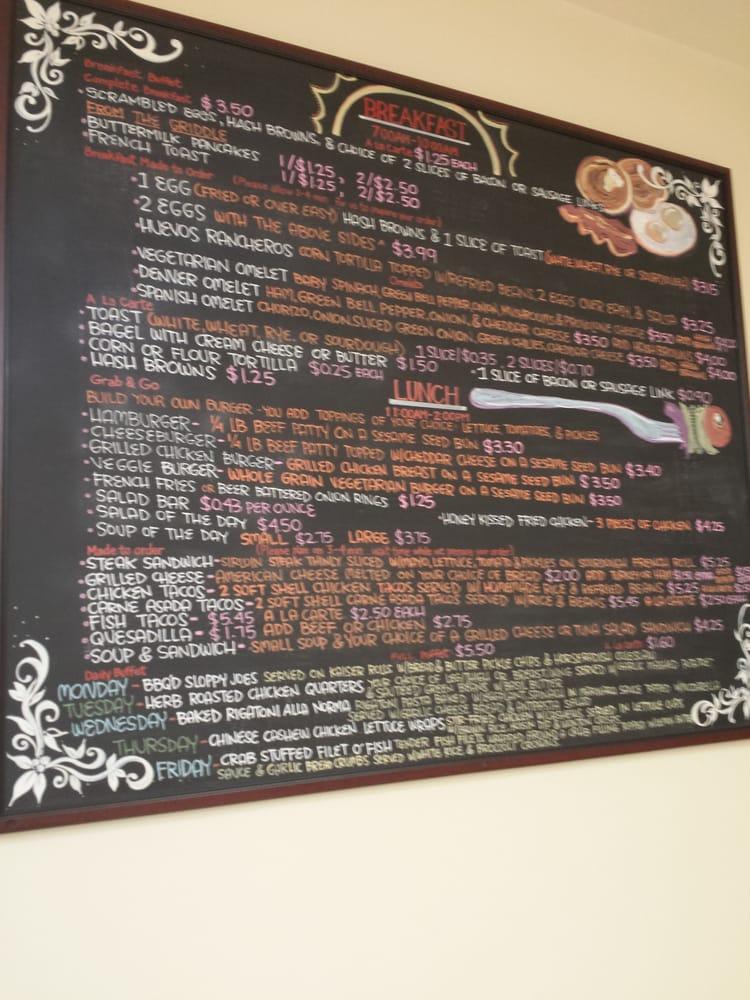 BREAKFAST
7:00AM-10:00AM
A la Carte $1.25 EACH
Breakfast Buffet
Complete Breakfast $3.50
• SCRAMBLED EGGS, HASH BROWNS, & CHOICE OF 2 SLICES OF BACON OR SAUSAGE LINKS
FROM THE GRIDDLE
• BUTTERMILK PANCAKES 1/$1.25, 2/$2.50
• FRENCH TOAST 1/$1.25, 2/$2.50
Breakfast Made to Order
• 1 EGG (FRIED OR OVER EASY) HASH BROWNS & 1 SLICE OF TOAST (WHITE, WHEAT, RYE OR SOURDOUGH) $3.15
• 2 EGGS WITH THE ABOVE SIDES $3.99
• HUEVOS RANCHEROS CORN TORTILLA TOPPED W/REFRIED BEANS, 2 EGGS OVER EASY, & SALSA $3.25
Omelets
• VEGETARIAN OMELET BABY SPINACH, GREEN BELL PEPPER, ONION, MUSHROOM, & PROVOLONE CHEESE $3.50
• DENVER OMELET HAM, GREEN BELL PEPPER, ONION, & CHEDDAR CHEESE $3.50 $4.00
• SPANISH OMELET CHORIZO, ONION, SLICED GREEN ONION, GREEN CHILIES, CHEESE $3.50 $4.00
A La Carte
• TOAST (WHITE, WHEAT, RYE, OR SOURDOUGH) 1 SLICE/$0.35, 2 SLICES/$0.70
• BAGEL WITH CREAM CHEESE OR BUTTER $1.50
• CORN OR FLOUR TORTILLA $0.25 EACH
• 1 SLICE OF BACON OR SAUSAGE LINK $0.90
• HASH BROWNS $1.25
LUNCH
11:00AM-2:00PM
Grab & Go
BUILD YOUR OWN BURGER - YOU ADD TOPPINGS OF YOUR CHOICE: LETTUCE TOMATOES, & PICKLES
• HAMBURGER- 1/4 LB BEEF PATTY ON A SESAME SEED BUN $3.30
• CHEESEBURGER- 1/4 LB BEEF PATTY TOPPED W/CHEDDAR CHEESE ON A SESAME SEED BUN $3.40
• GRILLED CHICKEN BURGER- GRILLED CHICKEN BREAST ON A SESAME SEED BUN $3.50
• VEGGIE BURGER- WHOLE GRAIN VEGETARIAN BURGER ON A SESAME SEED BUN $3.50
• FRENCH FRIES OR BEER BATTERED ONION RINGS $1.25
• SALAD BAR $0.43 PER OUNCE
• HONEY KISSED FRIED CHICKEN- 3 PIECES OF CHICKEN $4.25
• SALAD OF THE DAY $4.50
• SOUP OF THE DAY SMALL $2.75 LARGE $3.75
Made to order
• STEAK SANDWICH- SIRLOIN STEAK THINLY SLICED W/MAYO, LETTUCE, TOMATO & PICKLES ON SOURDOUGH FRENCH ROLL $5.25
• GRILLED CHEESE- AMERICAN CHEESE MELTED ON YOUR CHOICE OF BREAD $2.00 ADD TURKEY OR HAM
• CHICKEN TACOS- 2 SOFT SHELL CHICKEN TACOS SERVED W/ RICE & REFRIED BEANS $5.25
• CARNE ASADA TACOS- 2 SOFT SHELL CARNE ASADA TACOS SERVED W/RICE & BEANS $5.45 A LA CARTE
• FISH TACOS - $5.45 A LA CARTE $2.50 EACH
• QUESADILLA - $1.75 ADD BEEF OR CHICKEN $2.75
• SOUP & SANDWICH- SMALL SOUP & YOUR CHOICE OF A GRILLED CHEESE OR TUNA SALAD SANDWICH $4.25
Daily Buffet FULL BUFFET $5.50 A la carte $1.60
MONDAY - BBQ'D SLOPPY JOES SERVED ON KAISER ROLLS W/BREAD & BUTTER PICKLE CHIPS &
TUESDAY - HERB ROASTED CHICKEN QUARTERS
WEDNESDAY - BAKED RIGATONI ALLA NORMA
THURSDAY - CHINESE CASHEW CHICKEN LETTUCE WRAPS
FRIDAY - CRAB STUFFED FILET O' FISH TENDER FISH FILETS
SAUCE & GARLIC BREAD CRUMBS SERVED W/WHITE RICE & BROCCOLI